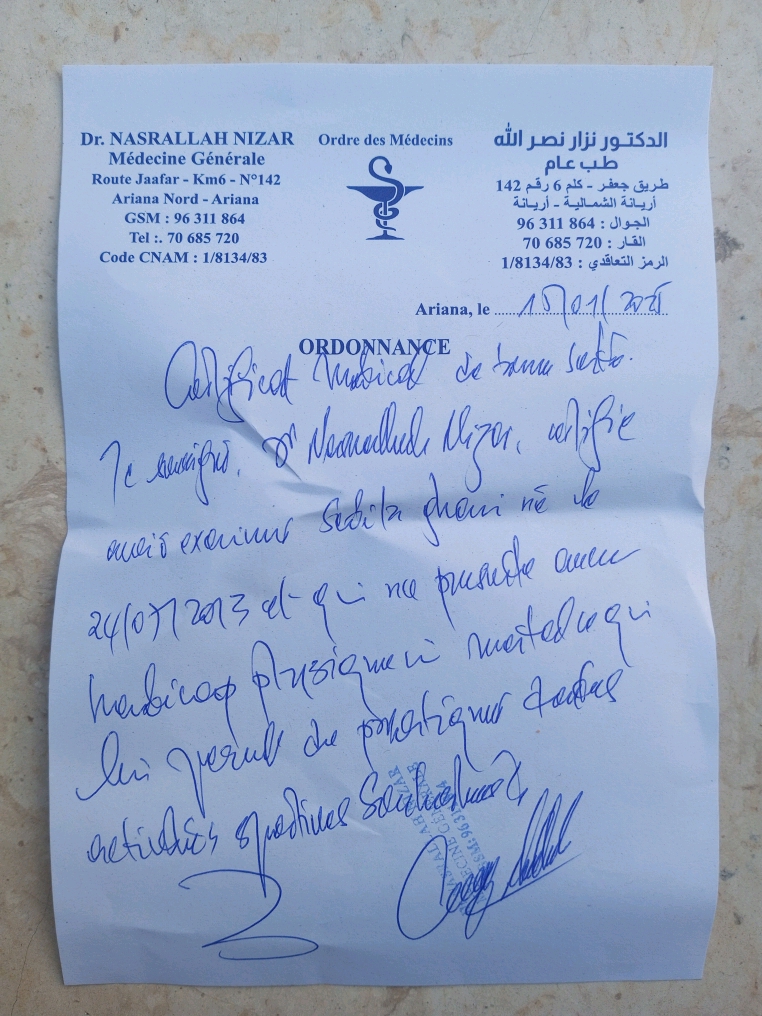 Dr. NASRALLAH NIZAR
Médecine Générale
Route Jaafar - Km6 - N°142
Ariana Nord - Ariana
GSM : 96 311 864
Tel :. 70 685 720
Code CNAM : 1/8134/83
Ordre des Médecins
الدكتور نزار نصر الله
طب عام
طريق جعفر - كلم 6 رقم 142
أريانة الشمالية - أريانة
الجوال : 864 311 96
القار : 720 685 70
الرمز التعاقدي : 1/8134/83
Ariana, le 15/01/2025
ORDONNANCE
Certificat Médical de bonne santé.
Je soussigné, Dr Nasrallah Nizar, certifie
avoir examiner ghani né le
24/07/2013 et qui ne présente aucun
handicap physique ni maladie qui
lui permet de pratiquer toutes
activités sportives
NASRALLAH NIZAR
MEDECINE GÉNÉRALE